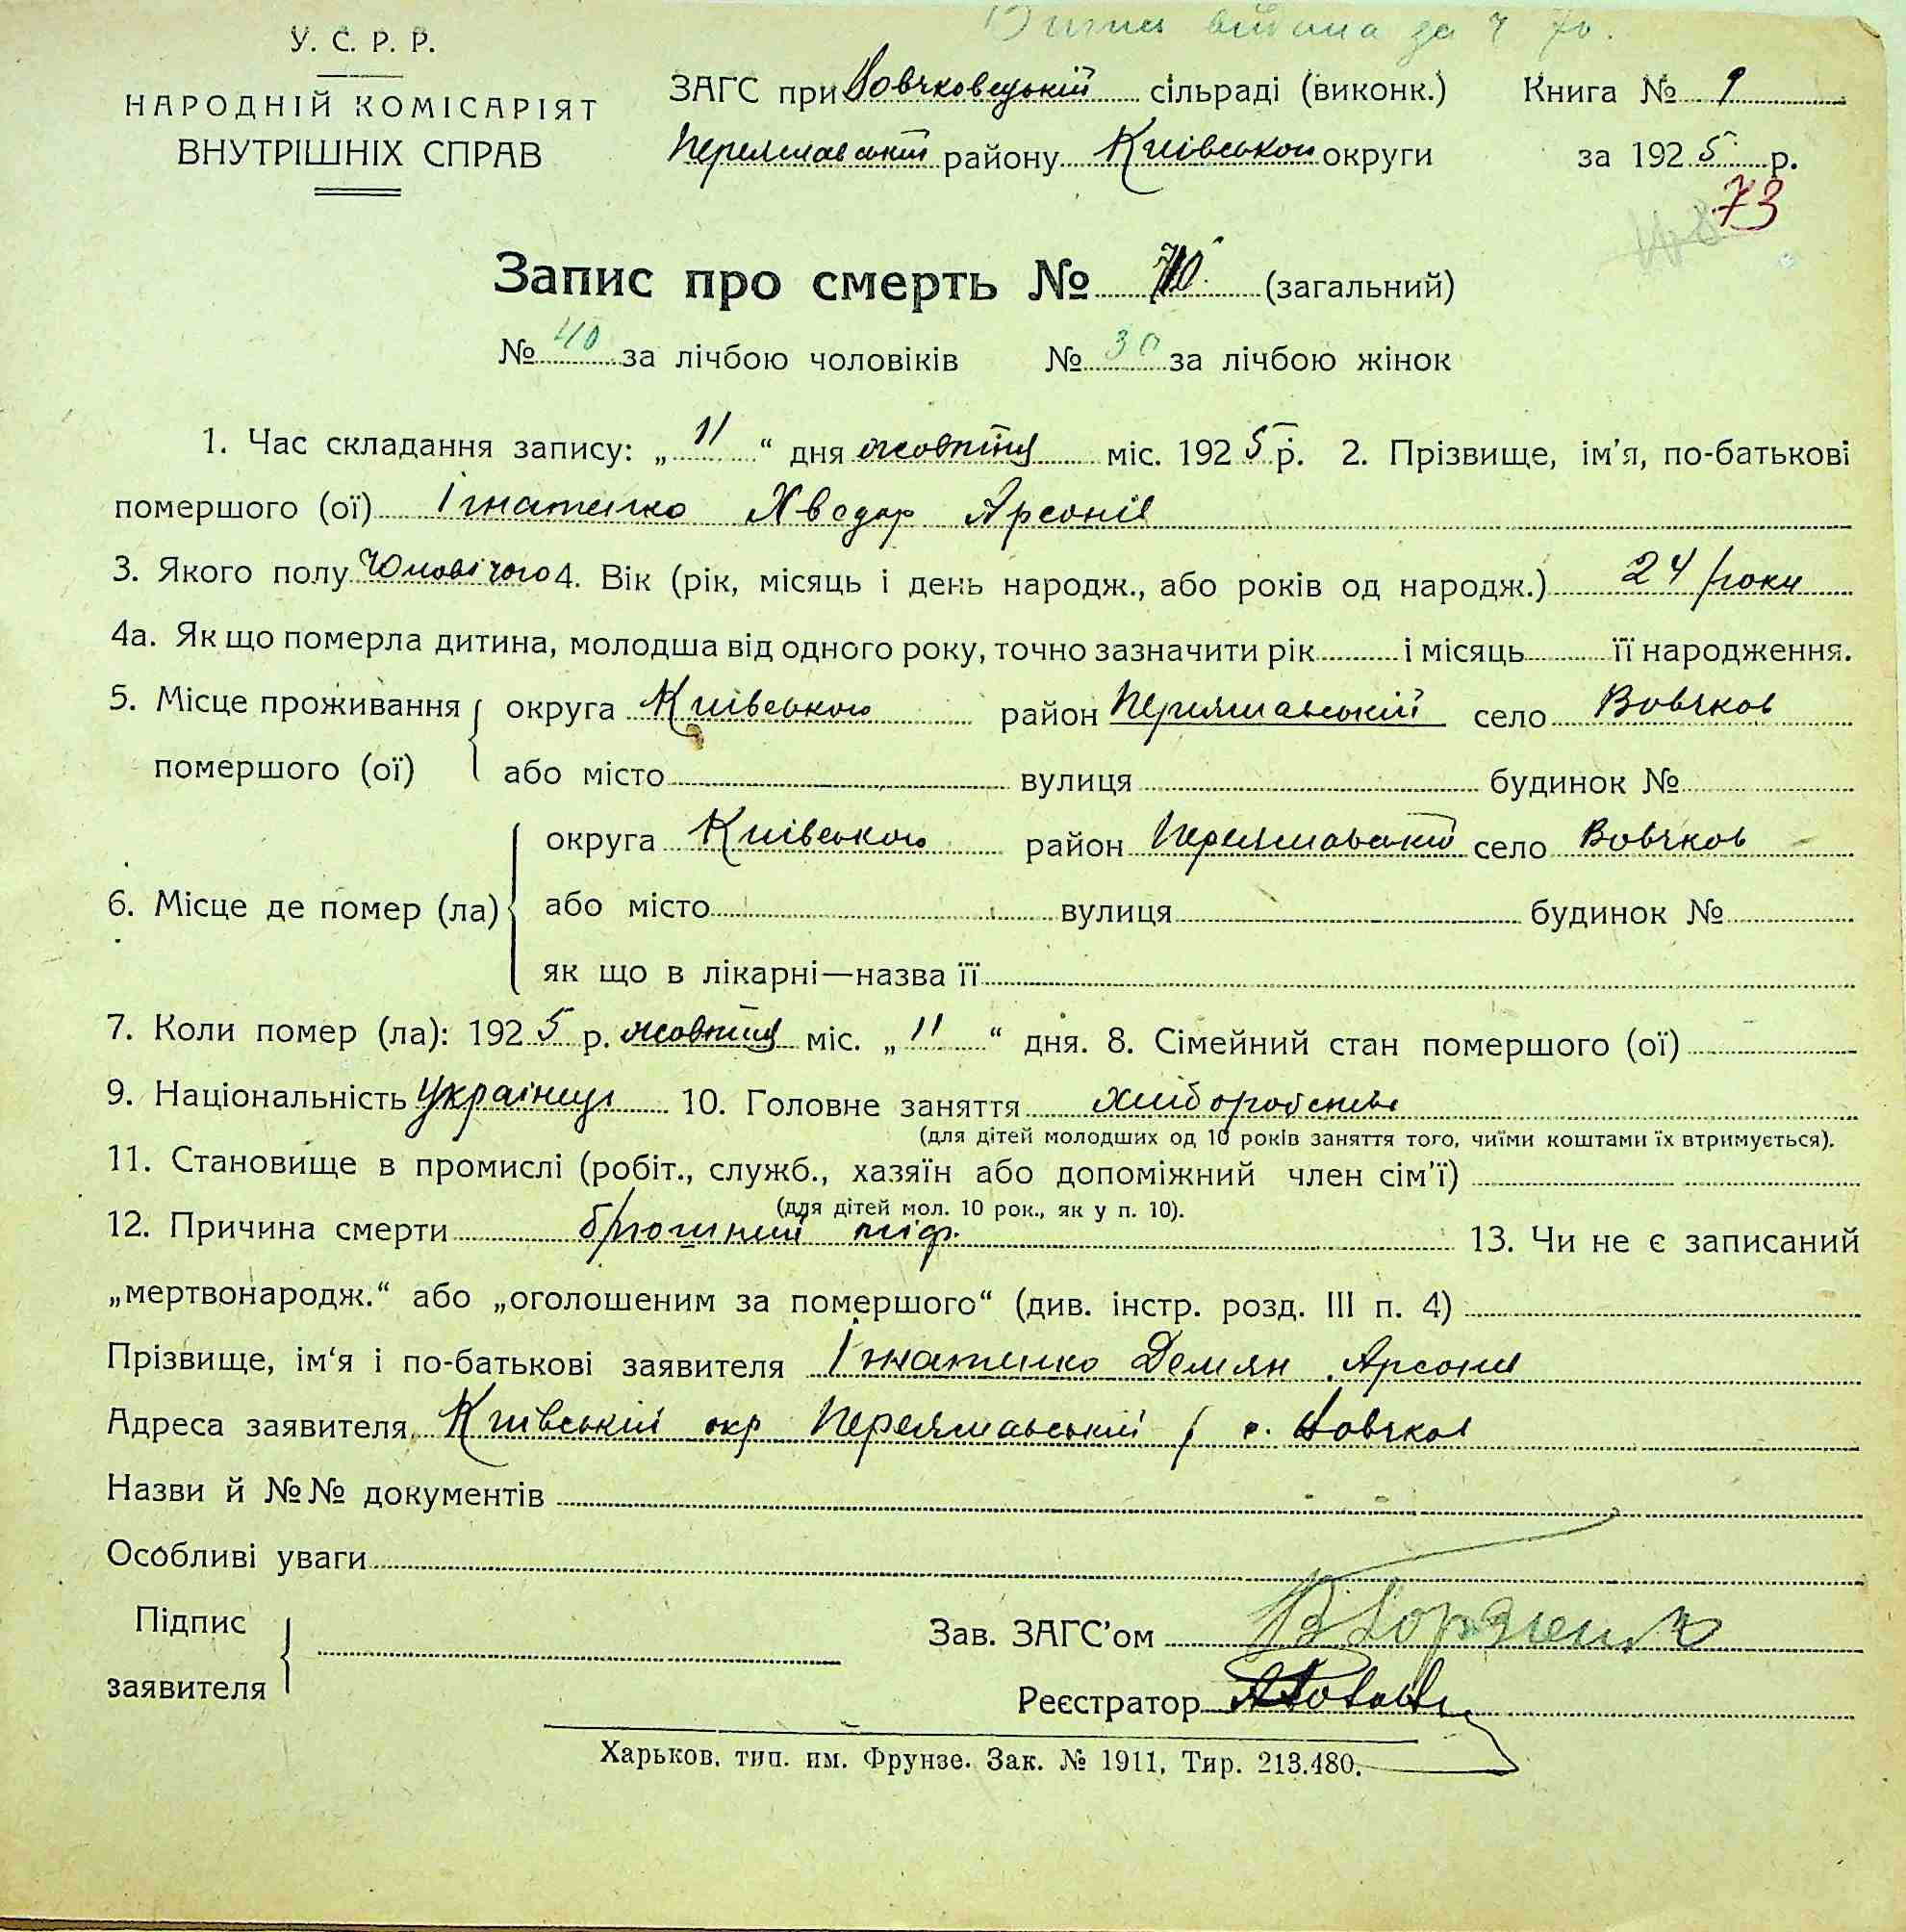 видана за
У. С. Р. Р.
НАРОДНІЙ КОМІСАРІЯТ
ВНУТРІШНІХ СПРАВ
ЗАГС при Вовчковецькій сільраді (виконк.) Книга № 1
Переяславській району Київської округи за 1925 р.
73
Запис про смерть № 70 (загальний)
№ 40 за лічбою чоловіків № 30 за лічбою жінок
1. Час складання запису: „11“ дня жовтня міс. 1925 р. 2. Прізвище, ім'я, по-батькові
помершого (ої) Ігнатенко Хведор Арсонів
3. Якого полу Чоловічого 4. Вік (рік, місяць і день народж., або років од народж.) 24 роки
4а. Як що померла дитина, молодша від одного року, точно зазначити рік і місяць її народження.
5. Місце проживання помершого (ої) округа Київською район Переяславський село Вовчков
або місто вулиця будинок №
6. Місце де помер (ла) округа Київською район Переяславській село Вовчков
або місто вулиця будинок №
як що в лікарні—назва її
7. Коли помер (ла): 1925 р. жовтня міс. „11“ дня. 8. Сімейний стан помершого (ої)
9. Національність Українці 10. Головне заняття хліборобство
(для дітей молодших од 10 років заняття того, чиїми коштами їх втримується).
11. Становище в промислі (робіт., служб., хазяїн або допоміжний член сім'ї)
(для дітей мол. 10 рок., як у п. 10).
12. Причина смерти брюшний тіф. 13. Чи не є записаний
„мертвонародж.“ або „оголошеним за помершого“ (див. інстр. розд. III п. 4)
Прізвище, ім'я і по-батькові заявителя Ігнатенко Демян Арсонів
Адреса заявителя Київській окр Переяславський р с. Вовчков
Назви й №№ документів
Особливі уваги
Підпис заявителя
Зав. ЗАГС'ом
Реєстратор
Харьков, тип. им. Фрунзе. Зак. № 1911, Тир. 213.480.